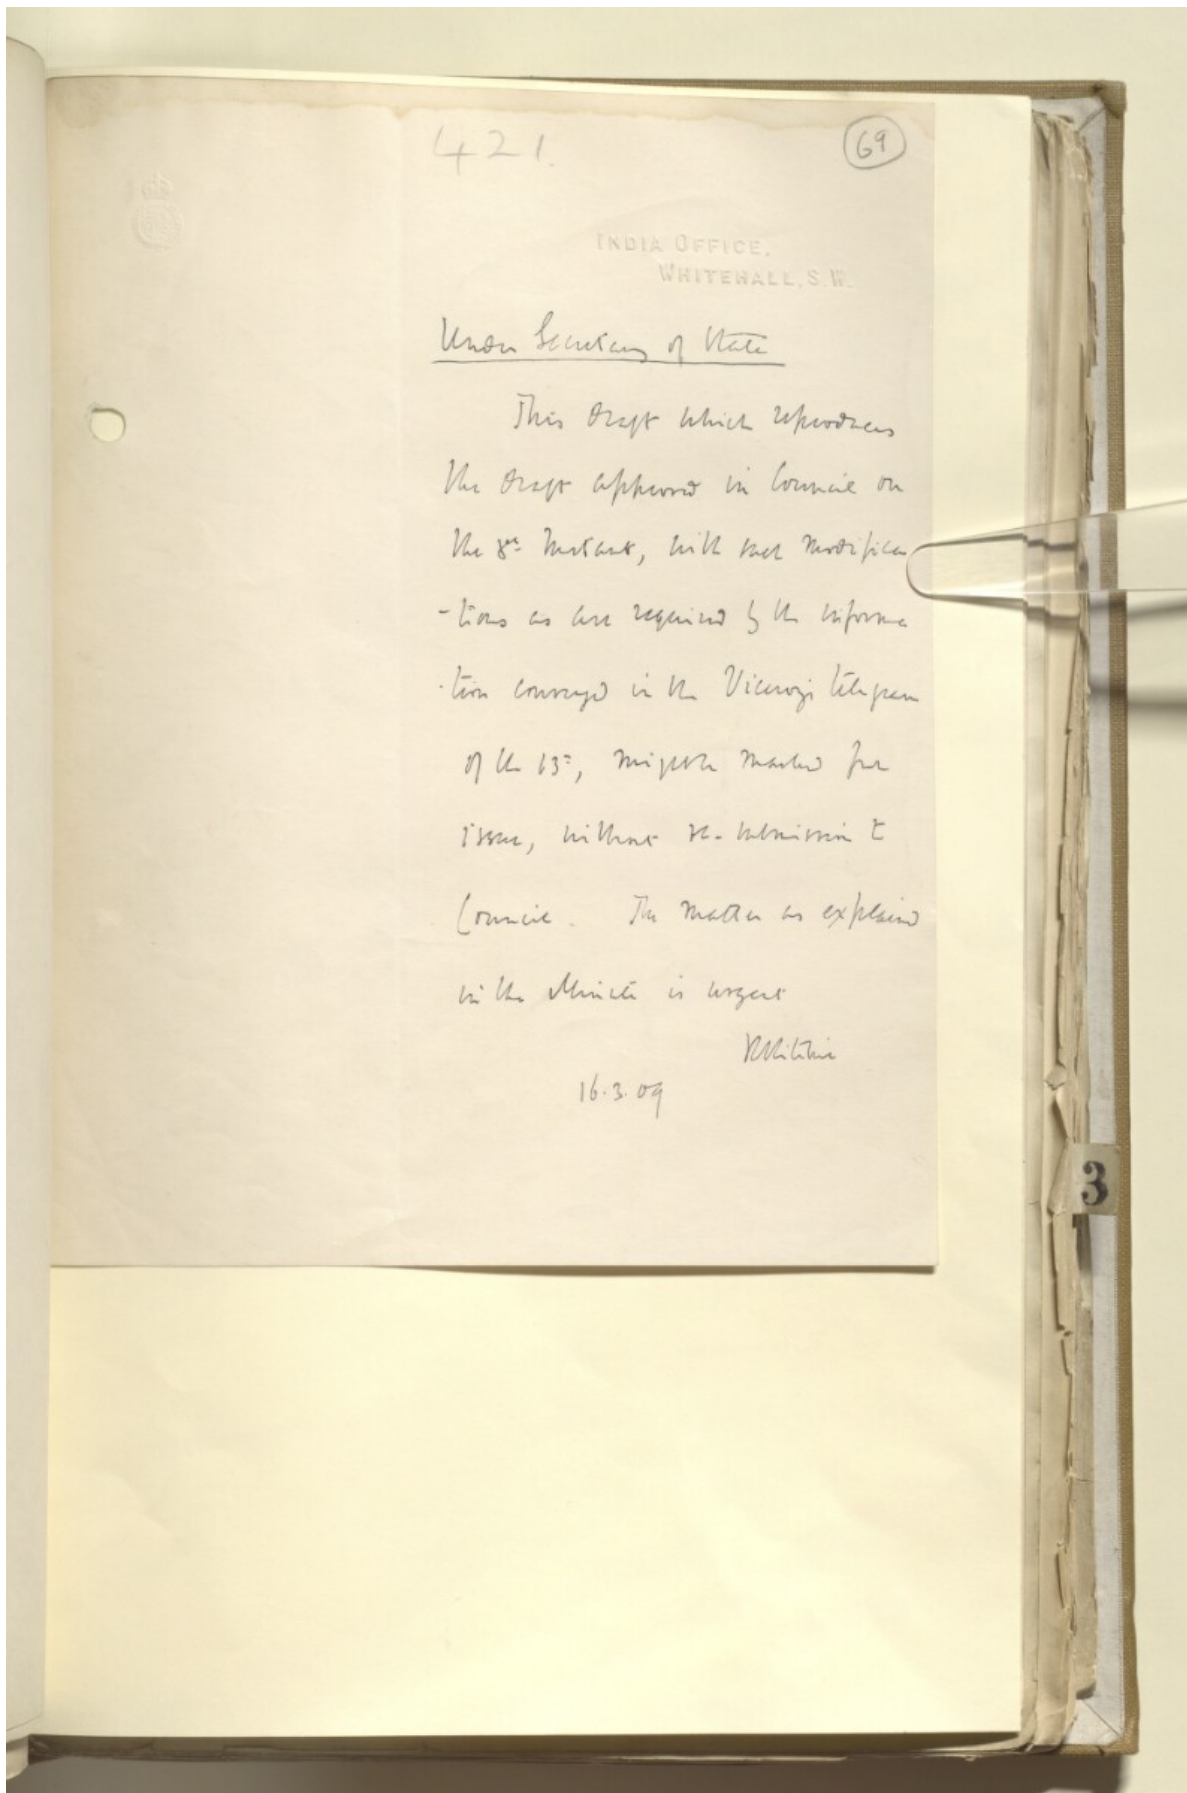 421.
69
INDIA OFFICE,
WHITEHALL, S.W.
Under Secretary of State
This draft which reproduces
the draft approved in Council on
the instant, with such modifica
-tions as are required by the informa
-tion conveyed in the Viceroy's telegram
of the 13th, might be marked for
issue, without re-submission to
Council. The matter as explained
in the Minute is urgent
RRitchie
16.3.09
3